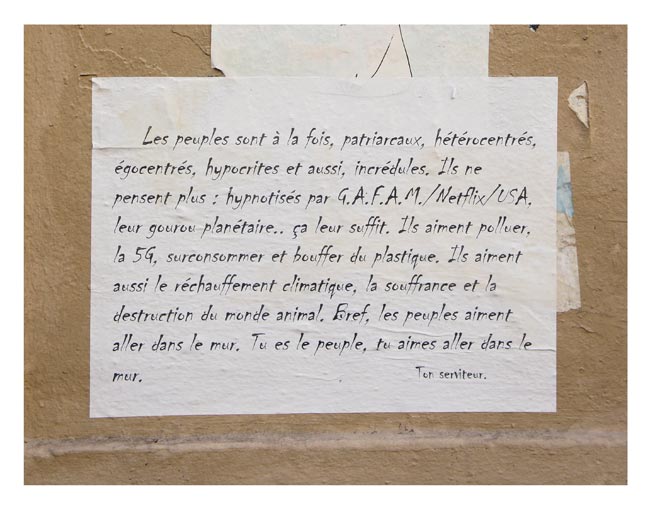 Les peuples sont à la fois, patriarcaux, hétérocentrés,
égocentrés, hypocrites et aussi, incrédules. Ils ne
pensent plus : hypnotisés par G.A.F.A.M./Netflix/USA.
leur gourou planétaire.. ça leur suffit. Ils aiment polluer,
la 5G, surconsommer et bouffer du plastique. Ils aiment
aussi le réchauffement climatique, la souffrance et la
destruction du monde animal. Bref, les peuples aiment
aller dans le mur. Tu es le peuple, tu aimes aller dans le
mur.
Ton serviteur.